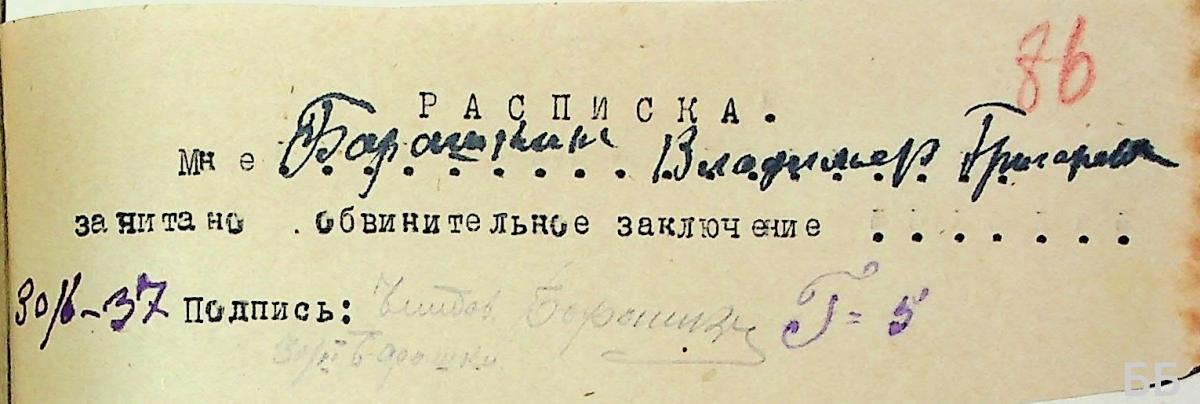 86
РАСПИСКА.
Мне Барашкин Владимер Григорьев
зачитано . обвинительное заключение . . . . . . .
30/6-37 Подпись: Барашки Г=5
Барашки
ББ